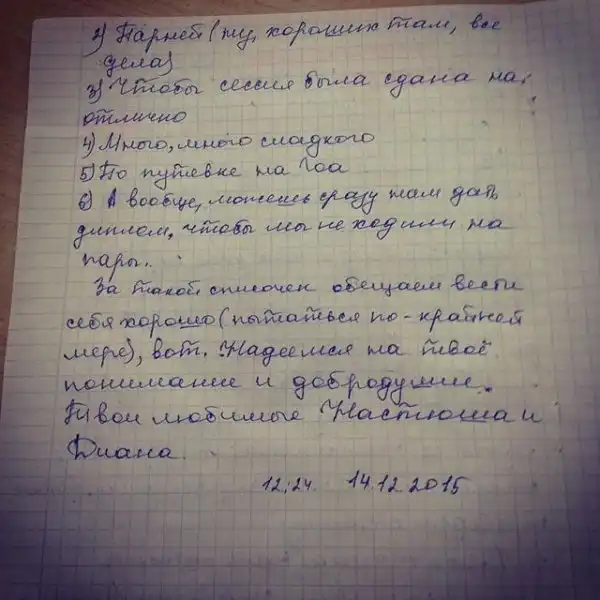 2) Парней (ну, хороших там, все
дела)
3) Чтобы сессия была сдана на
отлично
4) Много, много сладкого
5) По путевке на Гоа
6) А вообще, можешь сразу нам дать
диплом, чтобы мы не ходили на
пары..
За такой списочек обещаем вести
себя хорошо (пытаться по-крайней
мере), вот. Надеемся на твоё
понимание и добродушие.
Твои любимые Настюша и
Диана.
12:24. 14.12.2015